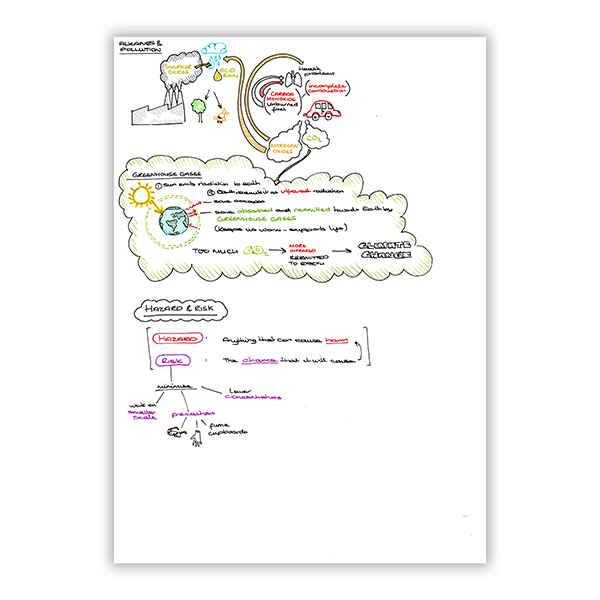 ALKANES &
POLLUTION
SULPHUR
OXIDES
ACID
RAIN
Health
problems
CARBON
MONOXIDE
unburned
fuel
(incomplete
combustion)
NITROGEN
OXIDES
CO2
GREENHOUSE GASES
① Sun emits radiation to earth
② Earth re-emits it as infrared radiation
some
some absorbed and re-emitted towards Earth by
GREENHOUSE GASES
(keeps us warm - supports life)
TOO MUCH CO2 → MORE
INFRARED
RE-EMITTED
TO EARTH
→ CLIMATE
CHANGE
HAZARD & RISK
HAZARD : Anything that can cause harm
RISK : The chance that it will cause
minimise
work on
smaller
scale
precautions
fume
cupboards
Lower
concentrations